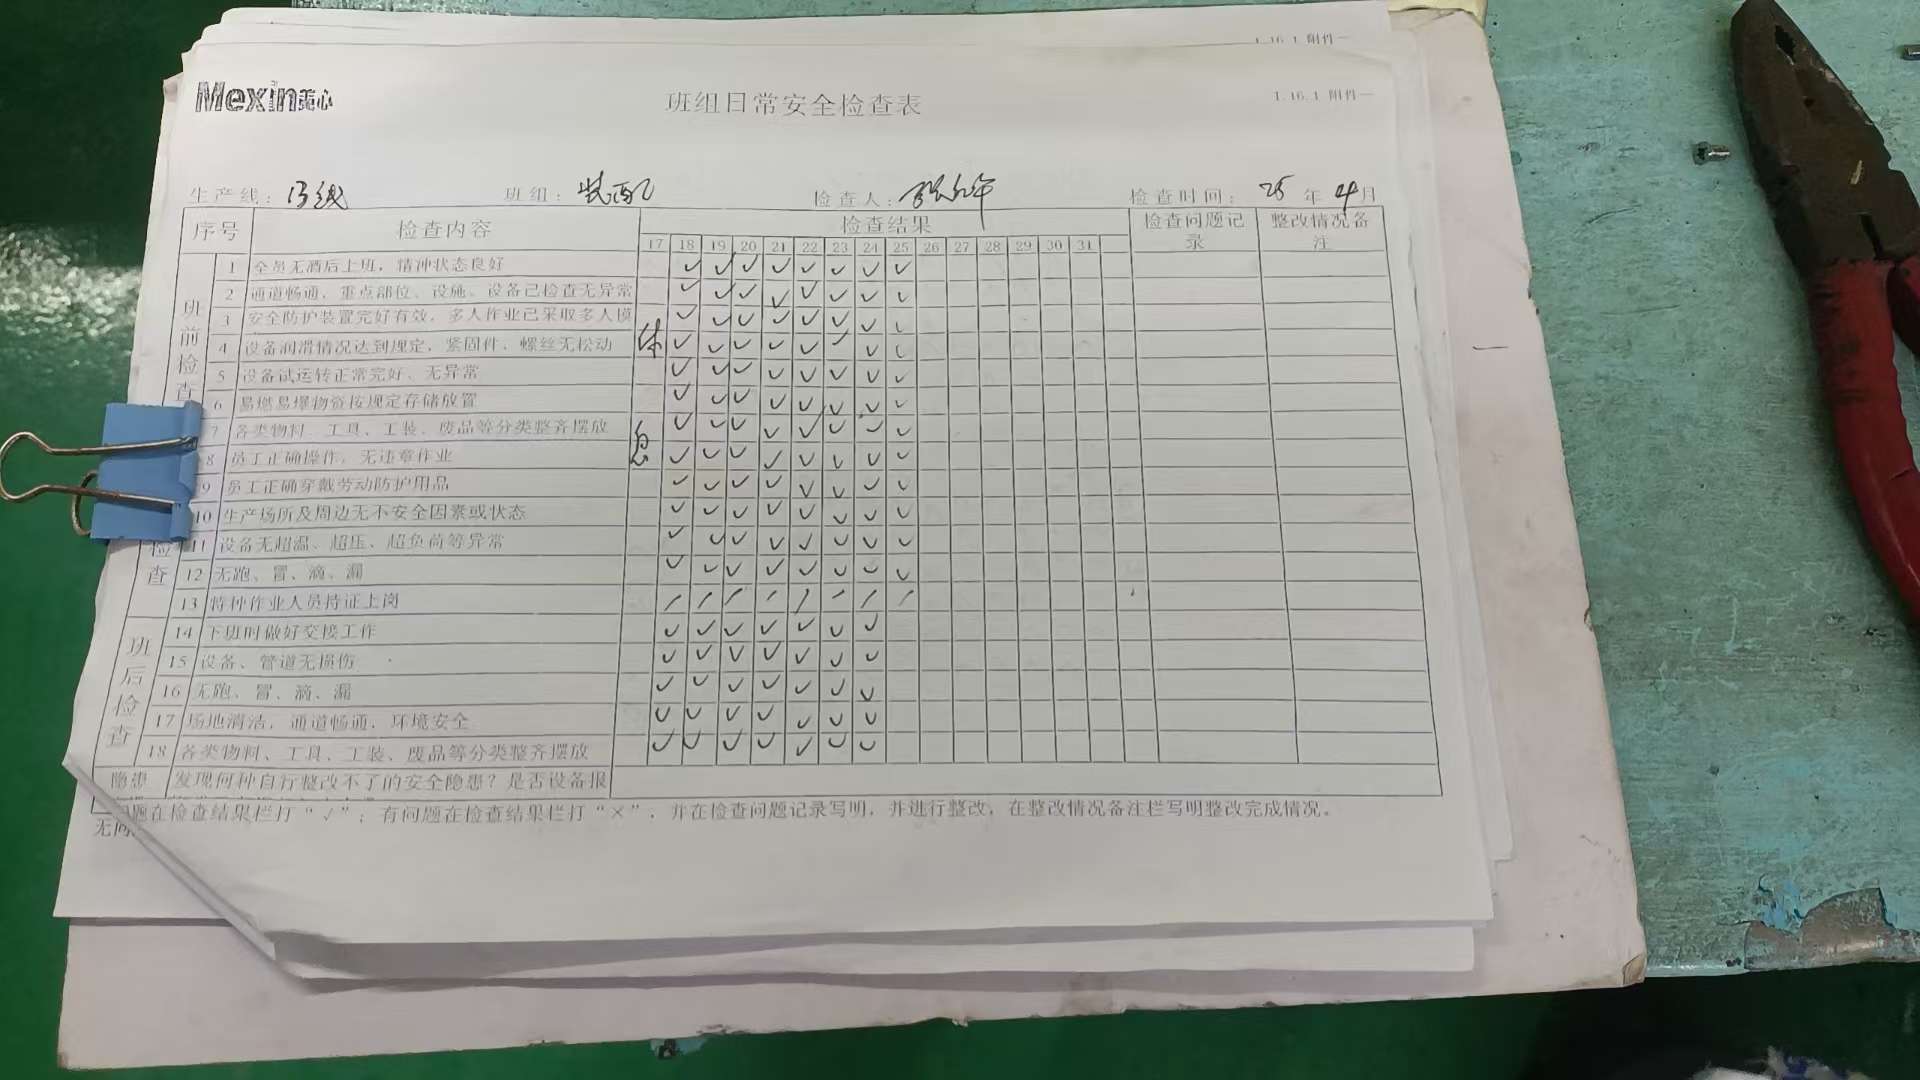 I.16.1 附件一
Mexin美心
班组日常安全检查表
I.16.1 附件一
生产线: 13线 班组: 装配 检查人: 检查时间: 25 年 4 月
序号 检查内容 检查结果 检查问题记录 整改情况备注
17 18 19 20 21 22 23 24 25 26 27 28 29 30 31
班前检查
1 全员无酒后上班，精神状态良好 √ √ √ √ √ √ √ √
2 通道畅通、重点部位、设施、设备已检查无异常 √ √ √ √ √ √ √ √
3 安全防护装置完好有效，多人作业已采取多人模 √ √ √ √ √ √ √ √
4 设备润滑情况达到规定，紧固件、螺丝无松动 √ √ √ √ √ √ √ √
5 设备试运转正常完好、无异常 √ √ √ √ √ √ √ √
6 易燃易爆物资按规定存储放置 √ √ √ √ √ √ √ √
7 各类物料、工具、工装、废品等分类整齐摆放 √ √ √ √ √ √ √ √
休息
8 员工正确操作，无违章作业 √ √ √ √ √ √ √ √
9 员工正确穿戴劳动防护用品 √ √ √ √ √ √ √ √
10 生产场所及周边无不安全因素或状态 √ √ √ √ √ √ √ √
检查
11 设备无超温、超压、超负荷等异常 √ √ √ √ √ √ √ √
12 无跑、冒、滴、漏 √ √ √ √ √ √ √ √
13 特种作业人员持证上岗 / / / / / / / /
班后检查
14 下班时做好交接工作 √ √ √ √ √ √ √
15 设备、管道无损伤 √ √ √ √ √ √ √
16 无跑、冒、滴、漏 √ √ √ √ √ √ √
17 场地清洁，通道畅通，环境安全 √ √ √ √ √ √ √
18 各类物料、工具、工装、废品等分类整齐摆放 √ √ √ √ √ √ √
隐患 发现何种自行整改不了的安全隐患？是否设备报
题在检查结果栏打“√”；有问题在检查结果栏打“×”，并在检查问题记录写明，并进行整改，在整改情况备注栏写明整改完成情况。
无问